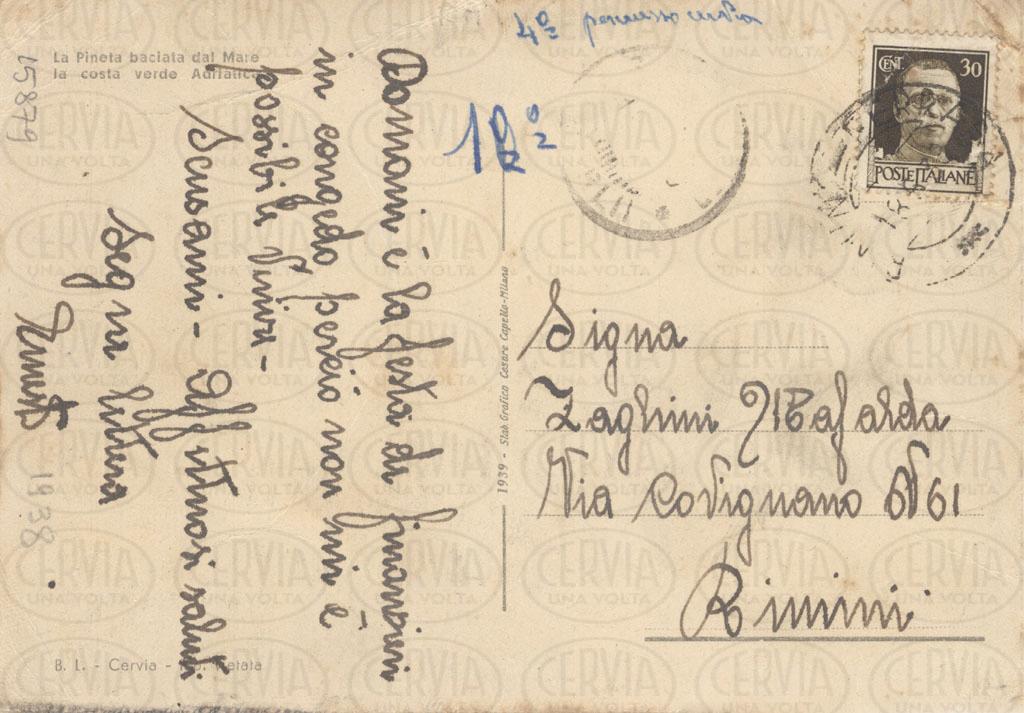 La Pineta baciata dal Mare
la costa verde Adriatica
15879
4º permesso
12º
CENT 30
POSTE ITALIANE
Domani è la festa di
in congedo perciò non mi è
possibile venire -
Scusami - Affettuosi saluti
1938
1939 - Stab. Grafico Cesare Capello-Milano
Signa
Zaghini Mafalda
Via Covignano N61
Rimini
B. L. - Cervia - Rip. Vietata
CERVIA
UNA VOLTA